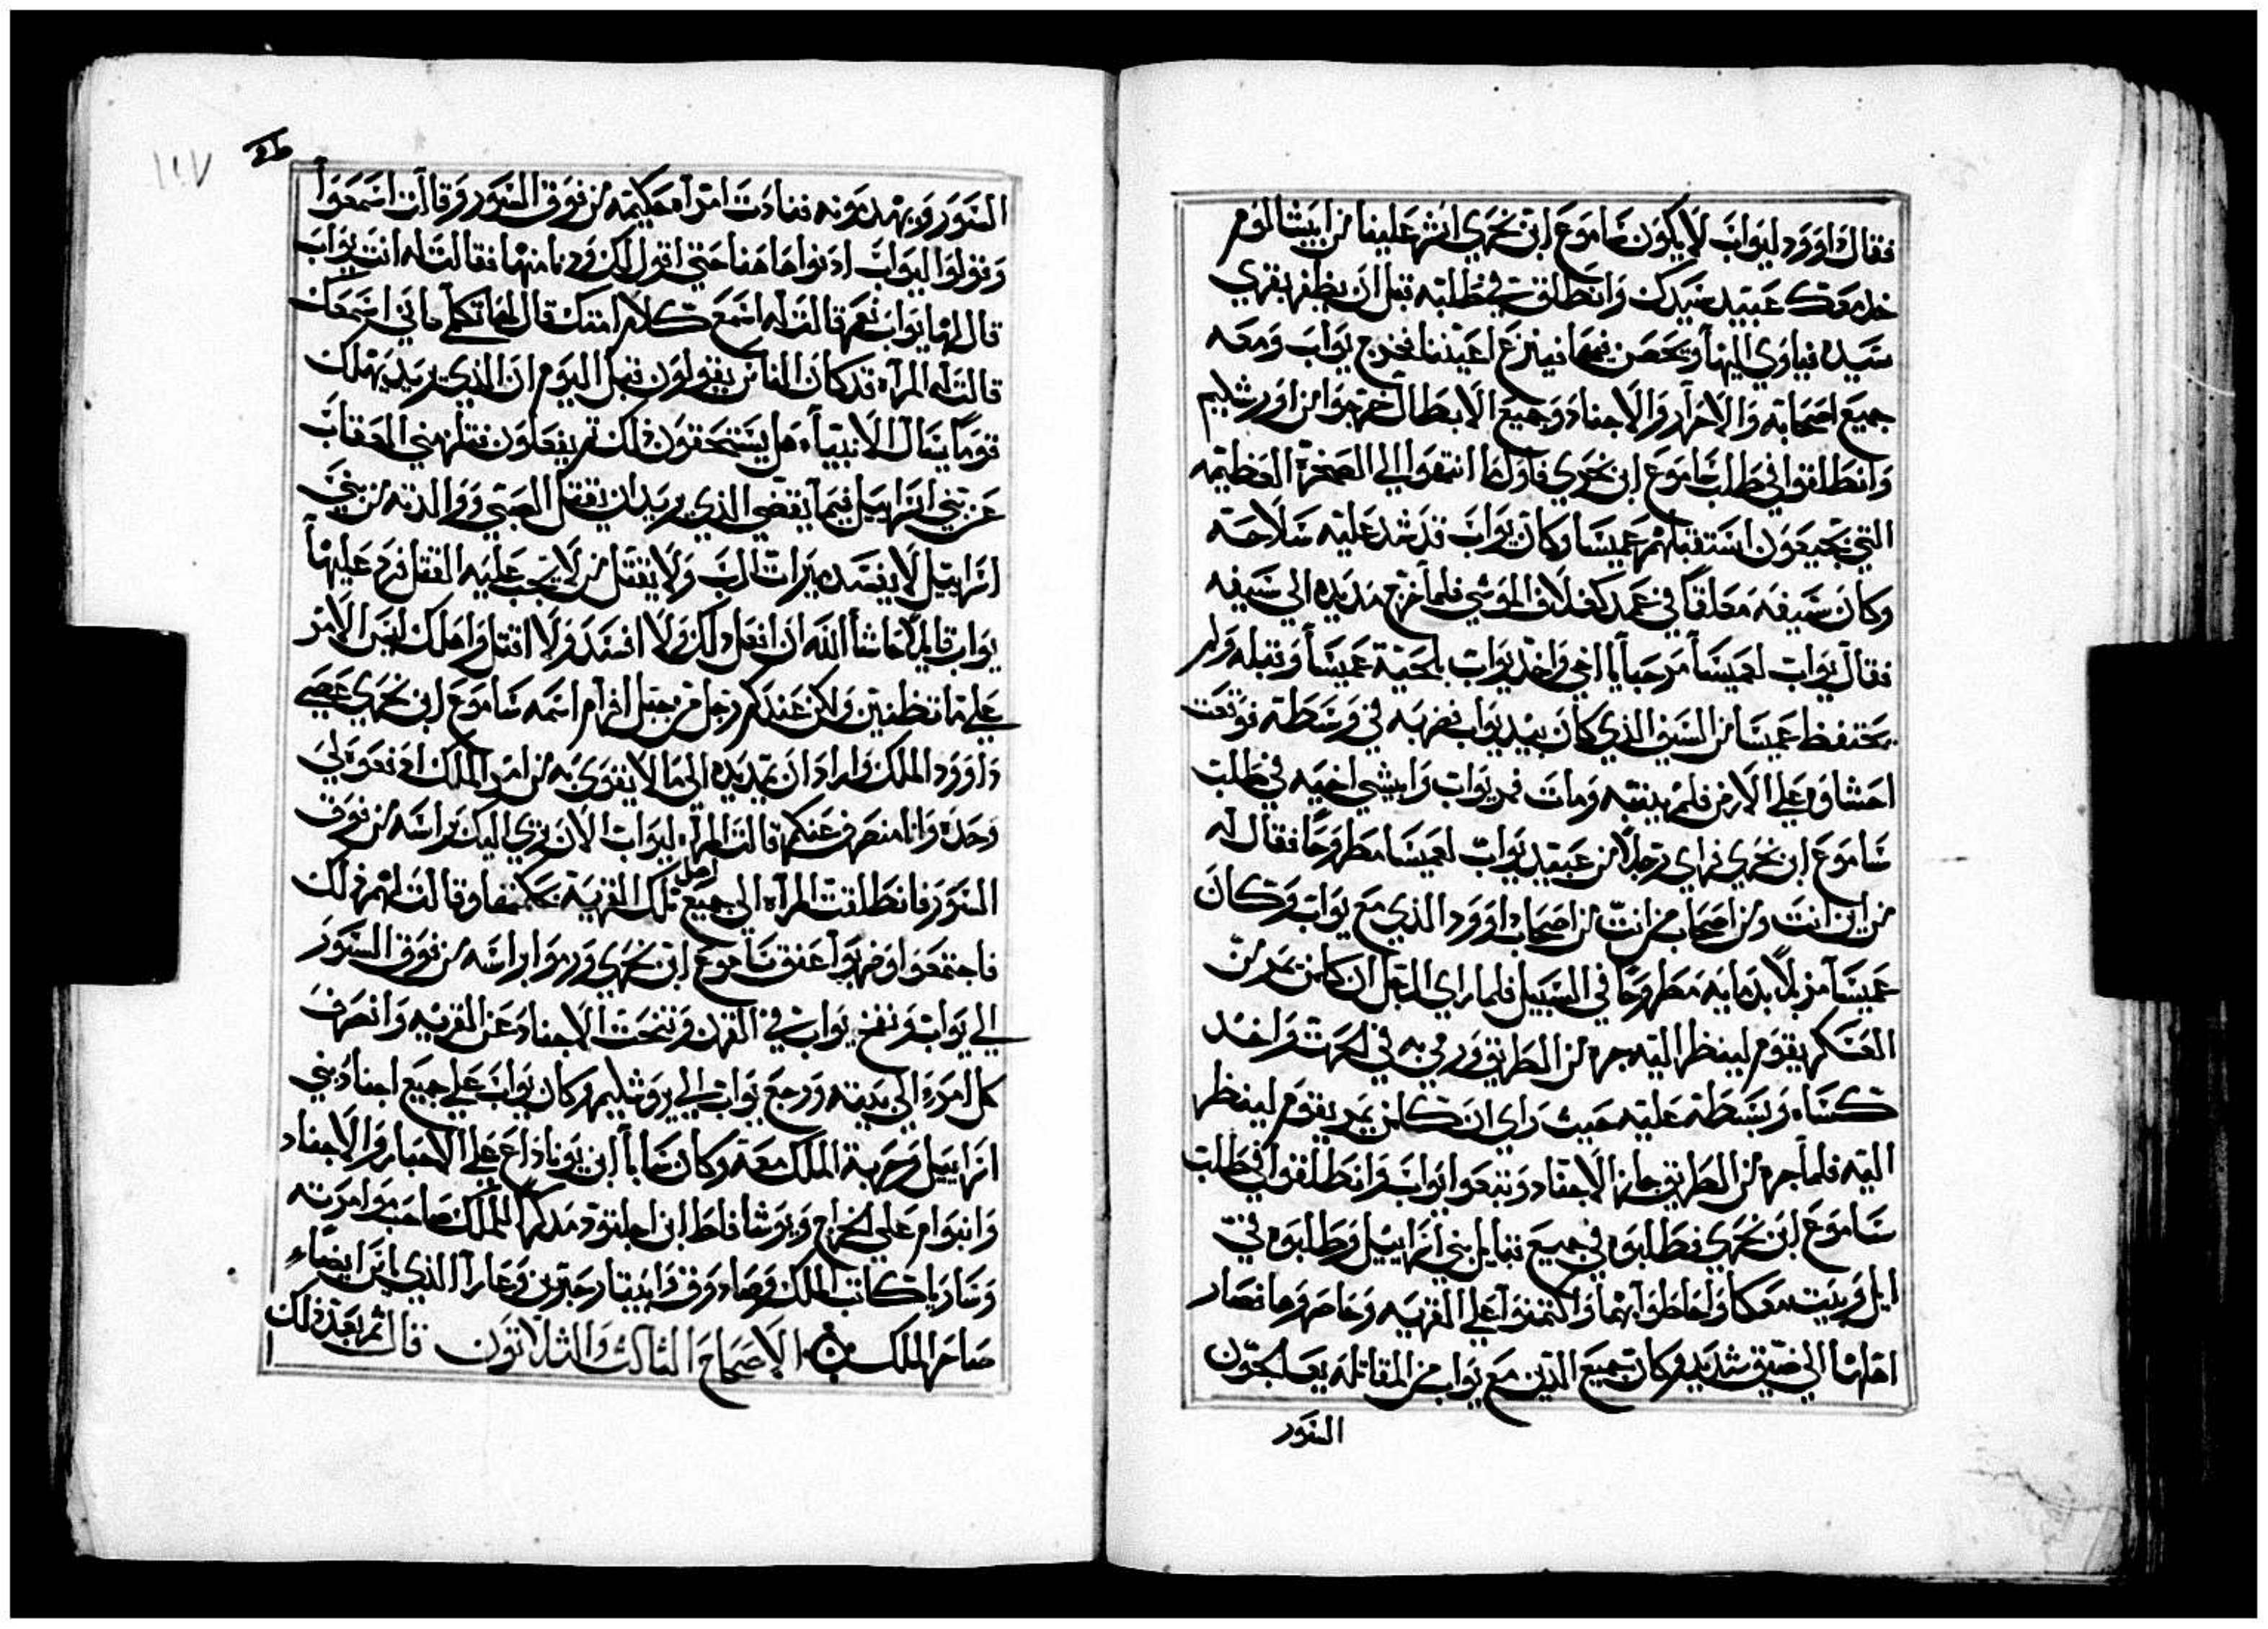 فقال داوود ليواب لا يكون ساموع ابن نخري اشر علينا من ابيشالوم
خذ معك عبيد سيدك وانطلق في طلبته قبل ان يظفر بقري
سيده فياوي اليها ويتحصن فيها فينزع اعيننا فخرج يواب ومعه
جميع اصحابه والاحرار والاجناد وجميع الابطال خرجوا من اورشليم
وانطلقوا في طلب ساموع ابن نخري فاول ما انتهوا الي الصخرة العظيمه
التي بجبعون استقبلهم عميسا وكان يواب قد شد عليه سلاحه
وكان سيفه معلقا في غمد كغلاف الموسي فلما خرج مد يده الي سيفه
فقال يواب لعميسا مرحبا يا اخي واخذ يواب بلحية عميسا وقبله ولم
يحتفظ عميسا من السيف الذي كان بيد يواب فضربه في وسطه فوقعت
احشاوه علي الارض فلم يثنيه ومات فمر يواب وابيشي اخيه في طلب
ساموع ابن نخري فراي رجلا من عبيد يواب لعميسا مطروحا فقال له
من اين انت ومن اصحاب من انت من اصحاب داوود الذي مع يواب وكان
عميسا مزملا بدمايه مطروحا في السبيل فلما راي الرجل ان كلمن يمر من
العسكر يقوم لينظر اليه جره من الطريق ورمي به في الحرث واخذ
كساه وبسطه عليه حيث راي ان كلمن يمر يقوم لينظر
اليه فلما جره من الطريق جاز الاجناد وتبعوا يواب وانطلقوا في طلب
ساموع ابن نخري فطلبوه في جميع قبايل بني اسراييل وطلبوه في
ابل وبيت معكا واحاطوا بهما واكتمنوا علي القريه وحاصروها فصار
اهلها الي ضيق شديد وكان جميع الذين مع يواب من المقاتله يعالجون
السور
ط٥
١١٧
السور ويهدمونه فنادت امراه حكيمه من فوق السور وقالت اسمعوا
وقولوا ليواب ادنوا هاهنا حتي اقول لك ودنا منها فقالت له انت يواب
قال لها يواب نعم قالت له اسمع كلام امتك قال لها تكلمي فاني اسمعك
قالت له المراه قد كان الناس يقولون قبل اليوم ان الذي يريد يهلك
قوما يسال الانبيا هل يستحقون ذلك ثم يفعلون فقل مني العقاب
عن بني اسراييل فيما يقضي الذي يريد ان يقتل الصبي ووالدته من بني
اسراييل لا يفسد ميراث الرب ولا يقتل من لا يجب عليه القتل فرد عليها
يواب قايلا حاشا الله ان افعل ذلك ولا افسد ولا اقتل واهلك ليس الامر
علي ما تظنين ولكن عندكم رجل من جبل افرام اسمه ساموع ابن نخري عصي
داوود الملك واراد ان يمد يده الي ما لا يقوي به من امر الملك ادفعوه لي
وحده وانا منصرف عنكم قالت المراه ليواب الان نرمي اليك براسه من فوق
السور فانطلقت المراه الي جميع اهل تلك القرية بحكمتها وقالت لهم ذلك
فاجتمعوا وضربوا عنق ساموع ابن نخري ورموا براسه من فوق السور
الي يواب ونفخ يواب في القرن وتنحت الاجناد عن القريه وانصرف
كل امرء الي بيته ورجع يواب الي يروشليم وكان يواب علي جميع اجناد بني
اسراييل وحربة الملك معه وكان بنايا ابن يوناداع علي الاحبار والاجناد
وادنيرام علي الخراج ويوشافاط ابن اخيلود مذكرا للملك صاحب موامرته
وساريا كاتب الملك وصادوق وابيتار حبرين وعارا الذي ياتر ايضا
صاحر الملك ۞ الاصحاح الثالث والثلاثون قال ثم بعد ذلك